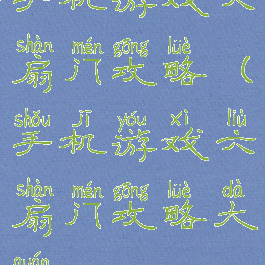 手机游戏六
shàn mén gōng lüè
扇门攻略（
shǒu jī yóu xì liù
手机游戏六
shàn mén gōng lüè dà
扇门攻略大
quán